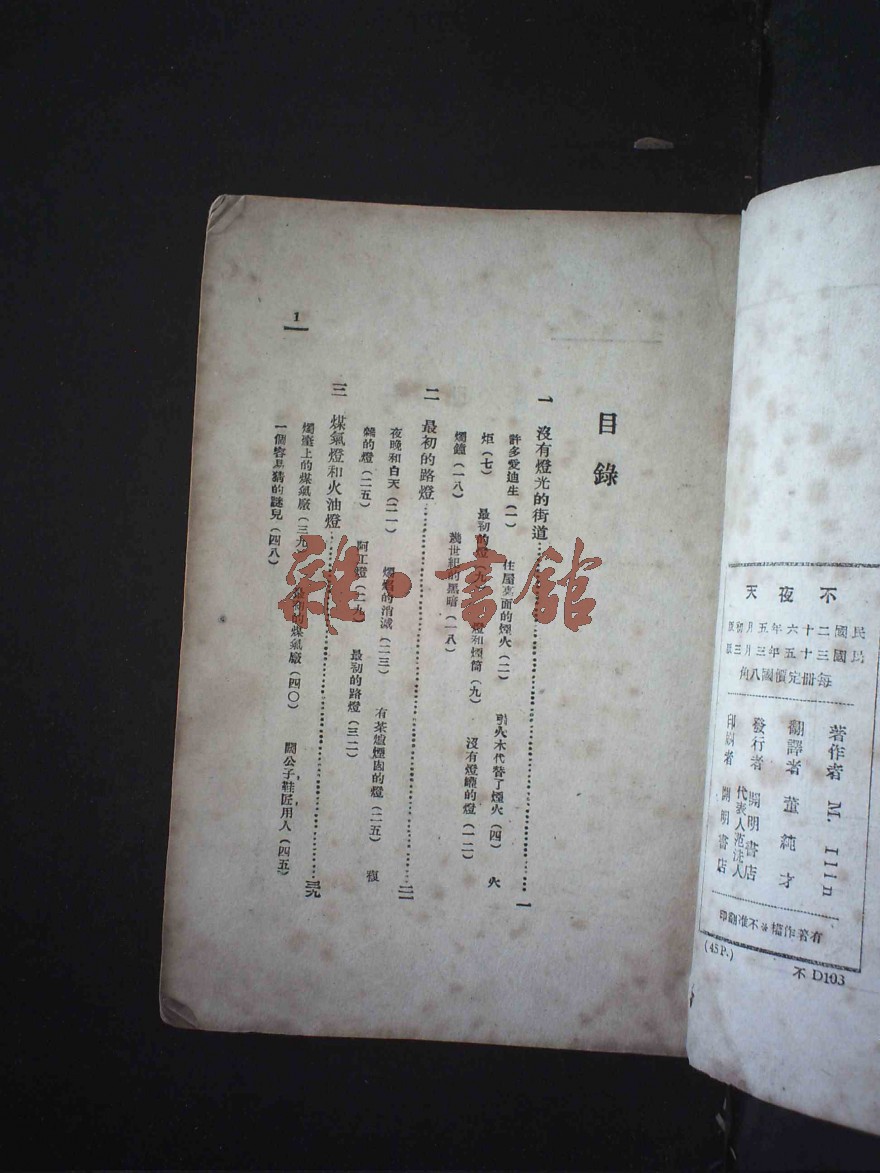 不夜天
民國二十六年五月初版
民國三十五年三月三版
每冊定價國八角
著作者 M. Ilin
翻譯者 董純才
發行者 開明書店
代表人范洗人
印刷者 開明書店
有著作權不准翻印
(45P.)
不 D103
目錄
一 沒有燈光的街道……一
許多愛迪生(一) 住屋裏面的煙火(二) 引火木代替了煙火(四) 火
炬(七) 最初的燈(九) 燈和煙筒(九) 沒有燈罐的燈(一二)
燭鐘(一八) 幾世紀的黑暗(一八)
二 最初的路燈……二一
夜晚和白天(二一) 燭焰的消滅(二三) 有茶爐煙囱的燈(二五) 複
雜的燈(二五) 阿工燈(二九) 最初的路燈(三二)
三 煤氣燈和火油燈……三九
燭臺上的煤氣廠(三九) 最初的煤氣廠(四〇) 闊公子,鞋匠,用人(四五)
一個容易猜的謎兒(四八)
1
雜·書館